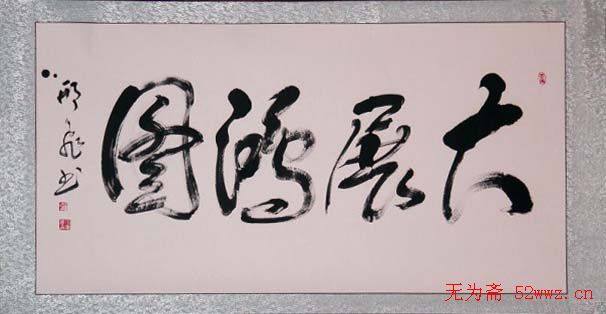 大展鸿图
书
无为斋 52wwz.cn